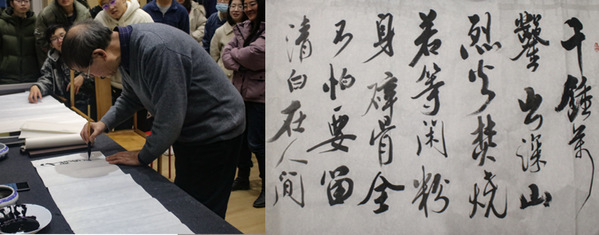 千锤萬
鑿出深山
烈火焚烧
若等闲粉
身碎骨全
不怕要留
清白在人间